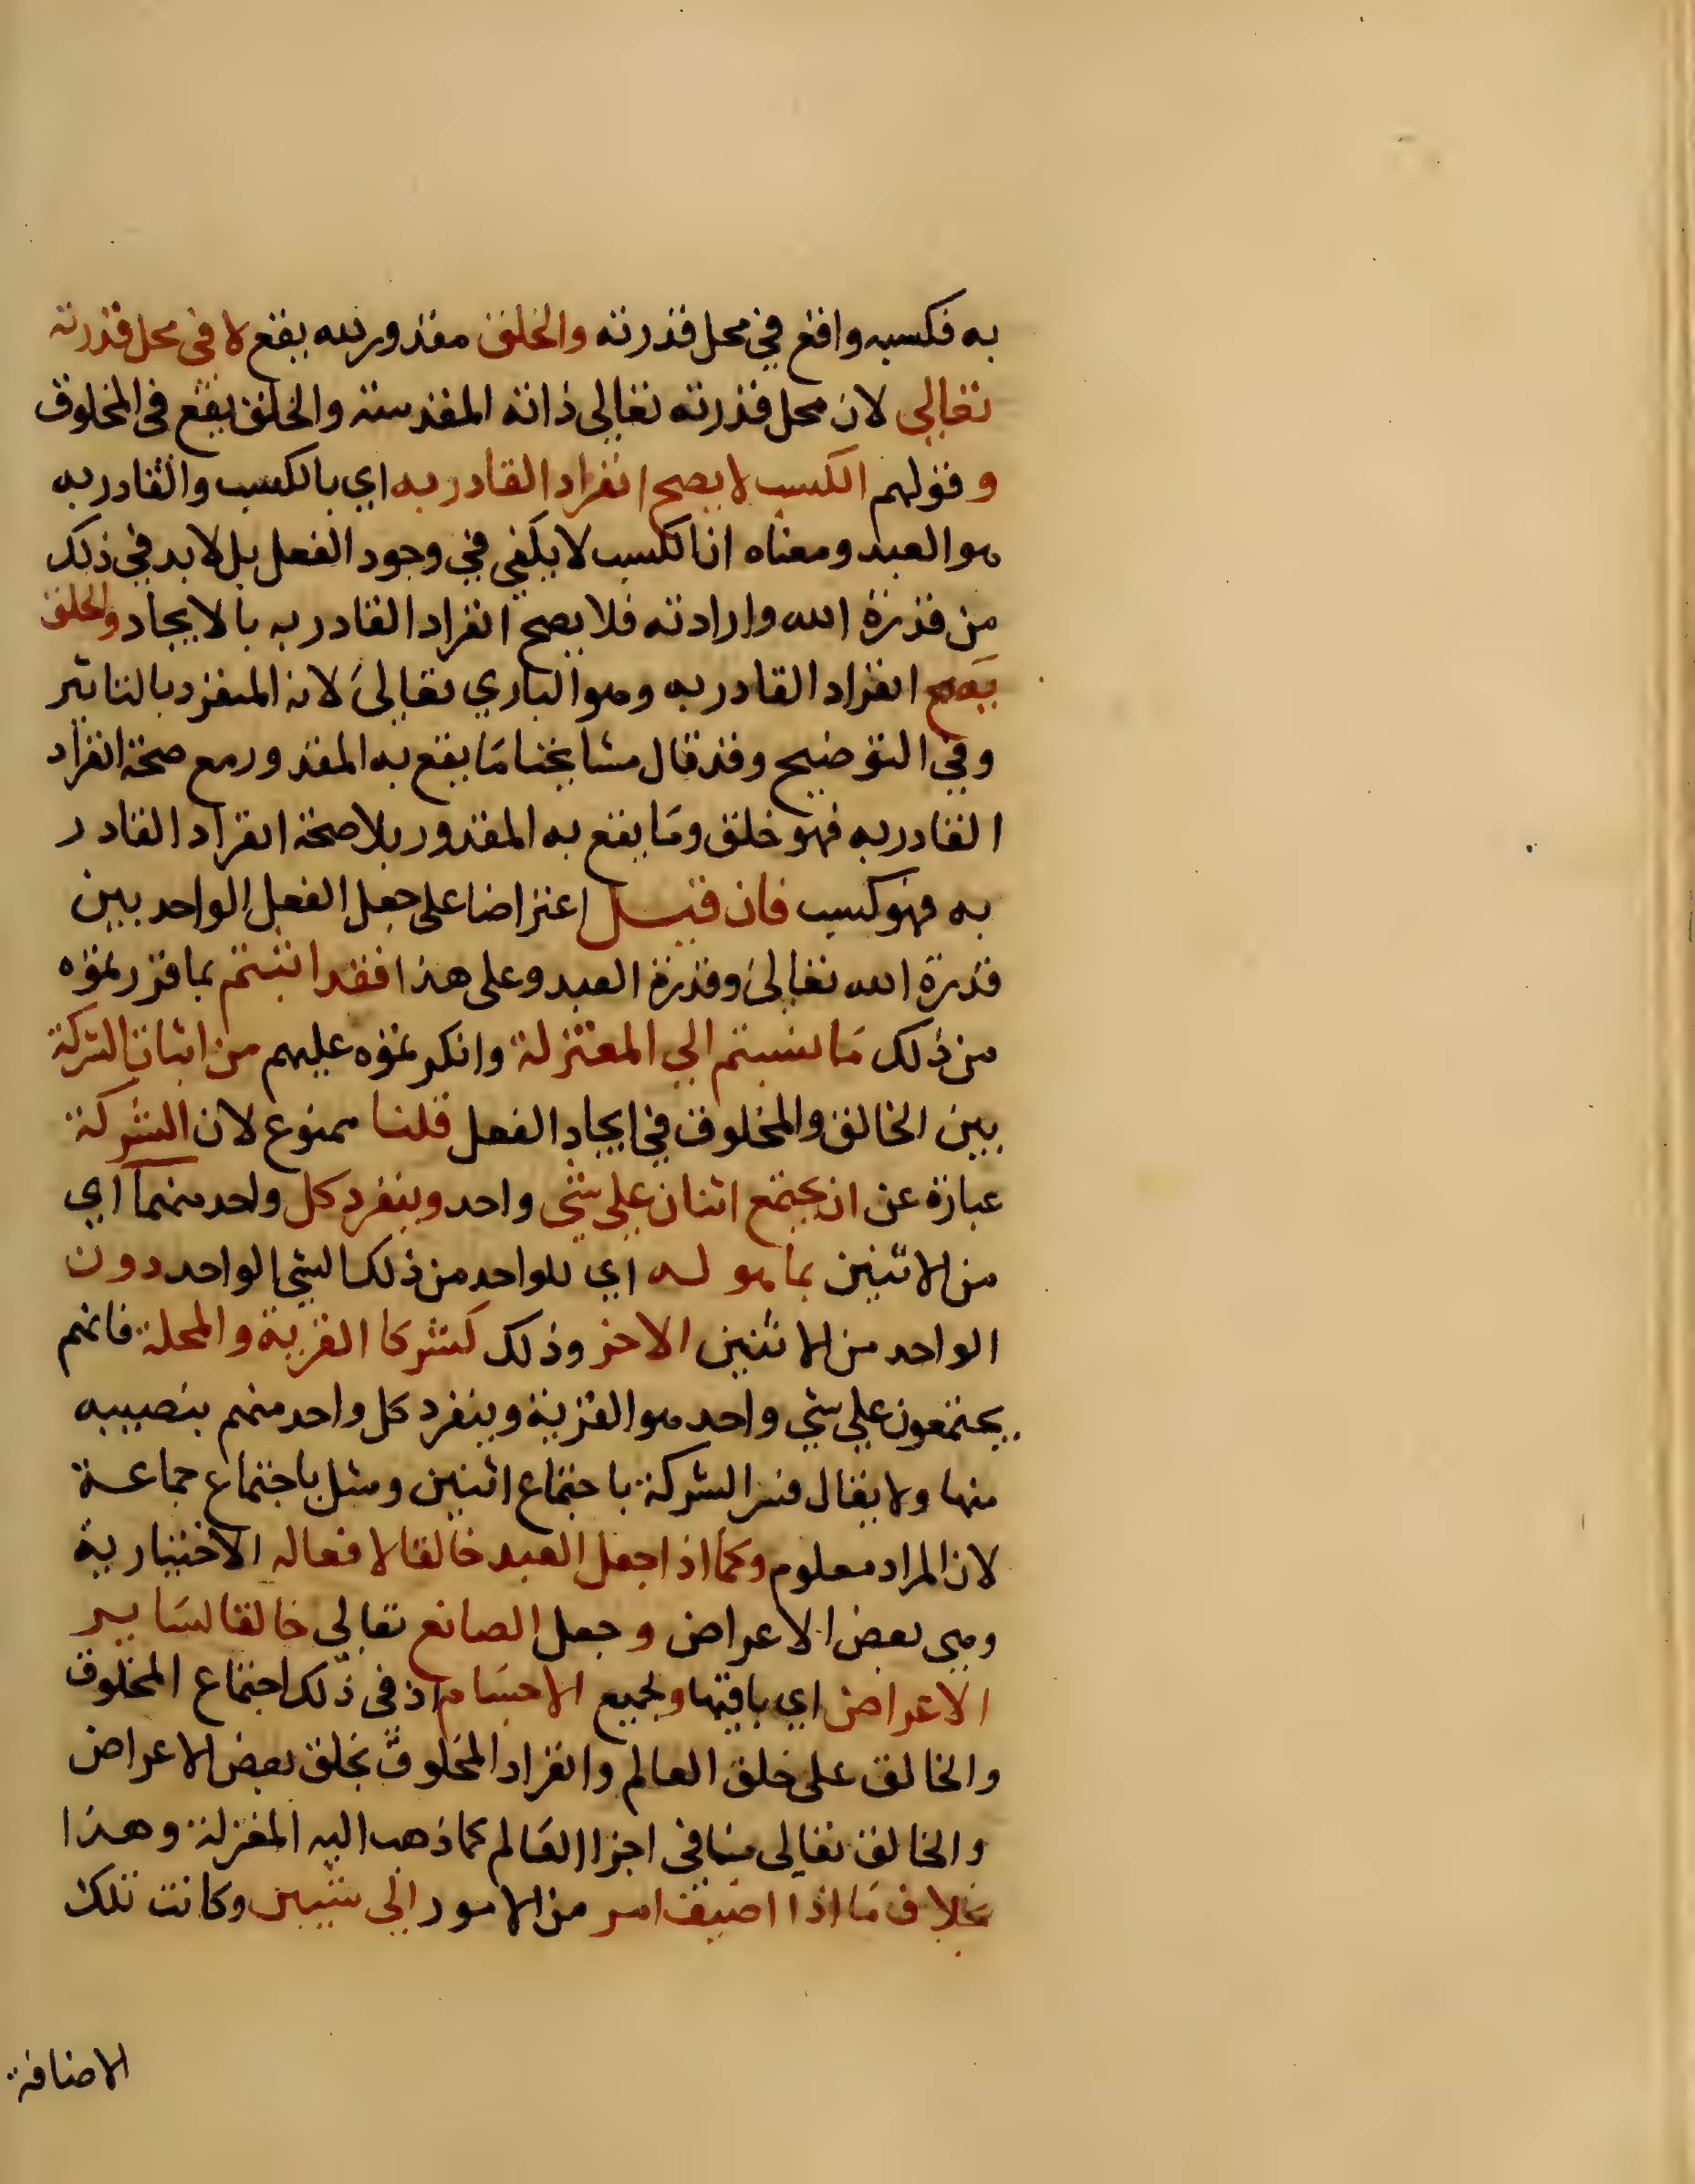 به فكسبه واقع في محل قدرته والخلق مقدور لله يقع لا في محل قدرته
تعالي لان محل قدرته تعالي ذاته المقدسة والخلق يقع في المخلوق
وقولهم الكسب لا يصح انفراد القادر به اي بالكسب والقادر به
هو العبد ومعناه ان الكسب لا يكفي في وجود الفعل بل لا بد في ذلك
من قدرة الله وارادته فلا يصح انفراد القادر به بالايجاد والخلق
يصح انفراد القادر به وهو الباري تعالى لانه المنفرد بالتاثير
وفي التوضيح وقد قال مشايخنا ما يقع به المقدور مع صحة انفراد
القادر به فهو خلق وما يقع به المقدور بلا صحة انفراد القادر
به فهو كسب فان قيل اعتراضا على جعل الفعل الواحد بين
قدرة الله تعالى وقدرة العبد وعلى هذا فقد اثبتم بما قررتموه
من ذلك ما نسبتم الي المعتزلة وانكرتموه عليهم من اثبات الشركة
بين الخالق والمخلوق في ايجاد الفعل قلنا ممنوع لان الشركة
عبارة عن ان يجتمع اثنان علي شي واحد وينفرد كل واحد منهما اي
من الاثنين بما هو له اي للواحد من ذلك الشي الواحد دون
الواحد من الاثنين الاخر وذلك كشركا القرية والمحلة فانهم
يجتمعون علي شي واحد هو القرية وينفرد كل واحد منهم بنصيبه
منها ولا يقال فسر الشركة باجتماع اثنين ومثل باجتماع جماعة
لان المراد معلوم وكما اذا جعل العبد خالقا لافعاله الاختيارية
وهي بعض الاعراض وجعل الصانع تعالي خالقا لساير
الاعراض اي باقيها ولجميع الاجسام اذ في ذلك اجتماع المخلوق
والخالق على خلق العالم وانفراد المخلوق بخلق بعض الاعراض
والخالق تعالى بما في اجزا العالم كما ذهب اليه المعتزلة وهذا
بخلاف ما اذا اضيف امر من الامور الى شيين وكانت تلك
الاضافة